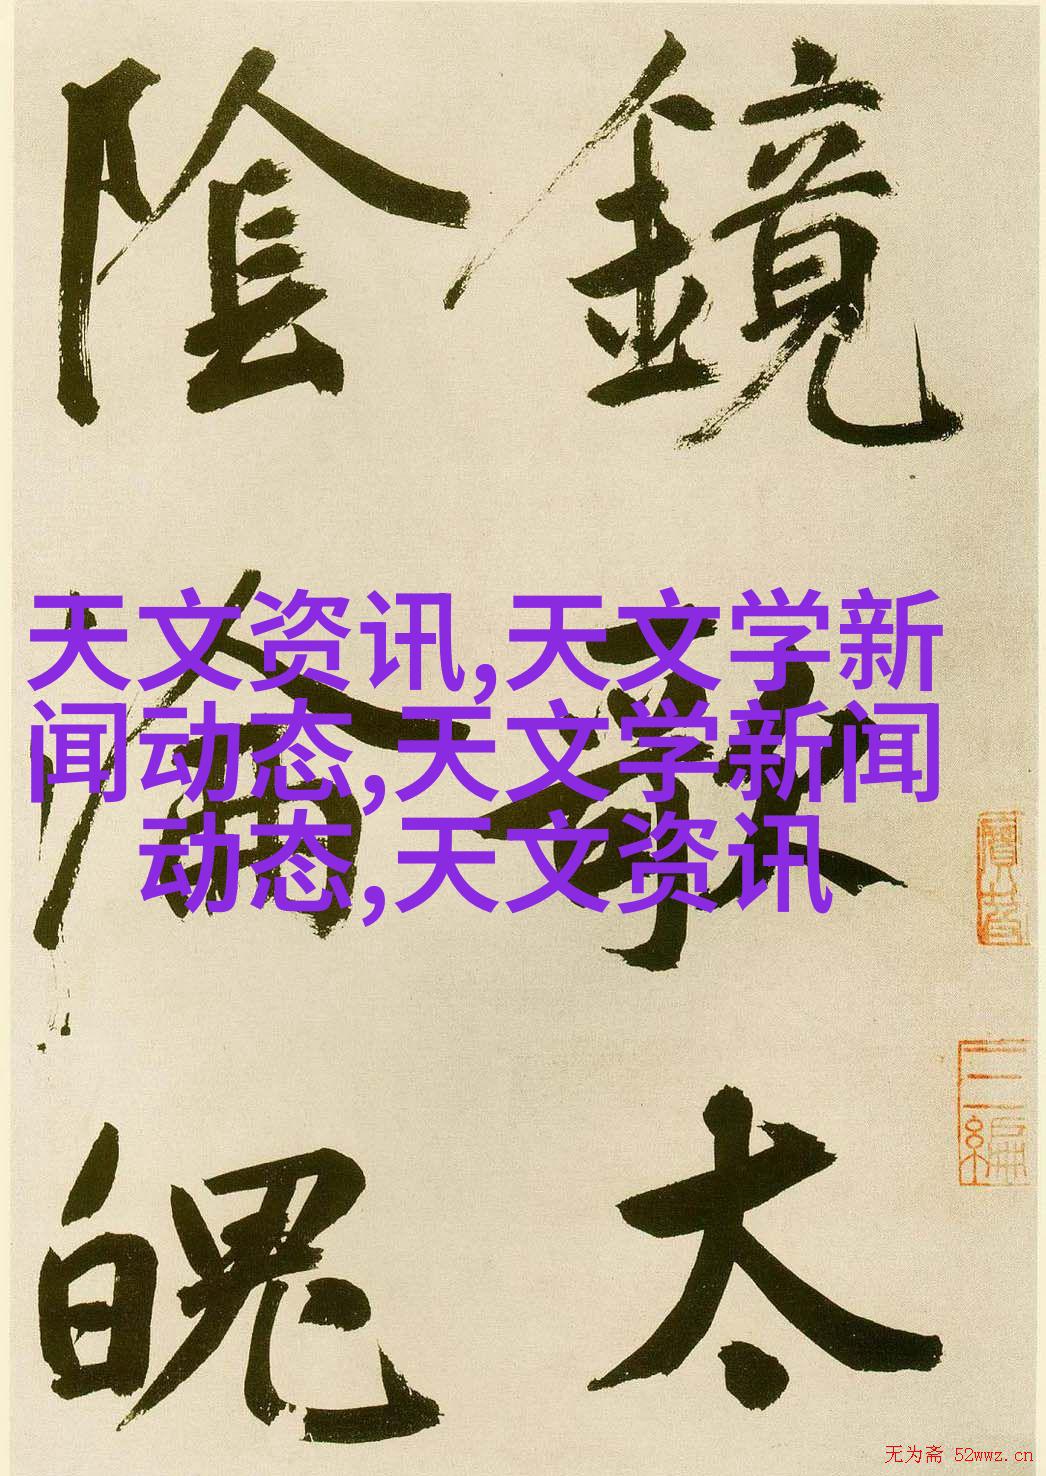 鏡
太
陰
魄
天文资讯,天文学新
闻动态,天文学新闻
动态,天文资讯
三編
无为斋 52wwz.cn